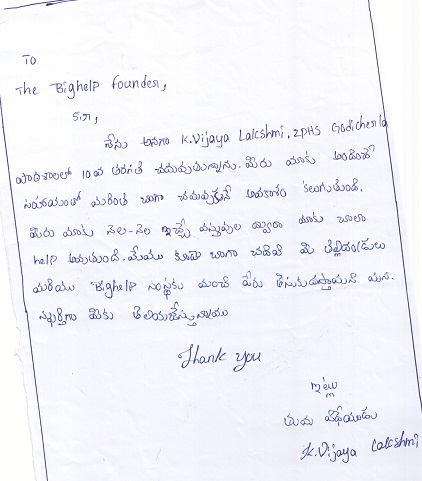 To
The Bighelp Founder,
Sir,
నేను అనగా K.Vijaya Lakshmi, ZPHS Godicherla
పాఠశాలలో 10వ తరగతి చదువుతున్నాను. మీరు మాకు అందించే
సహాయంతో మరింత బాగా చదువుకునే అవకాశం కలుగుతుంది.
మీరు మాకు నెల-నెల ఇచ్చే వస్తువుల ద్వారా మాకు చాలా
help అవుతుంది. మేము కూడా బాగా చదివి మీ తల్లిదండ్రులు
మరియు Bighelp సంస్థకు మంచి పేరు తీసుకువస్తామని మన.
మీకు తెలియజేస్తున్నాము
Thank you
ఇట్లు
తమ విధేయుడు
K.Vijaya Lakshmi